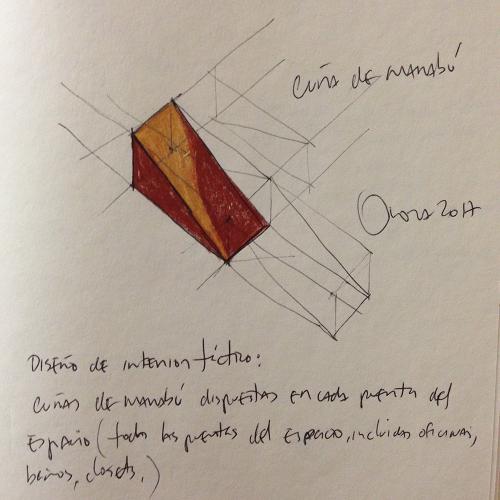 cuña de manabú
2017
Diseño de interior táctico:
cuñas de manabú dispuestas en cada puerta del
espacio (todas las puertas del espacio, incluidas oficinas,
baños, closets,)